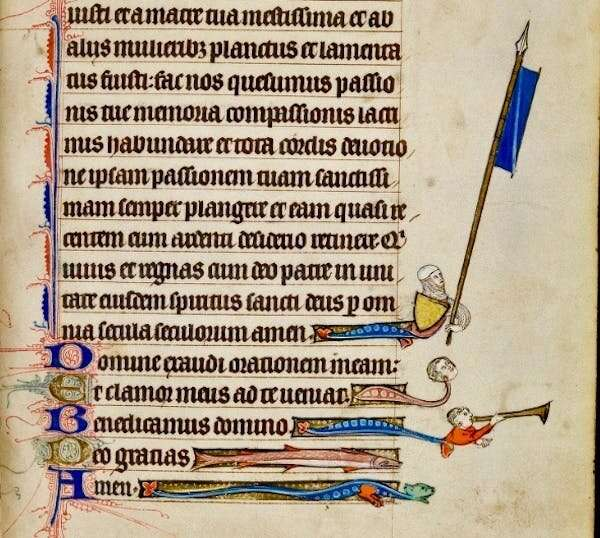 iuisti et a matre tua mestissima et ab
aliis mulieribꝫ planctus et lamenta
tus fuisti: fac nos quesumus passio
nis tue memoria compassionis lacri
mis habundare et tota cordis deuotio
ne ipsam passionem tuam sanctissi
mam semper plangere et eam quasi re
centem cum ardenti desiderio retinere Qͥ
uiuis et regnas cum deo patre in uni
tate eiusdem spiritus sancti deus ꝑ om
nia secula seculorum amen.
Domine exaudi orationem meam:
Et clamor meus ad te ueniat.
Benedicamus domino.
Deo gracias
Amen.